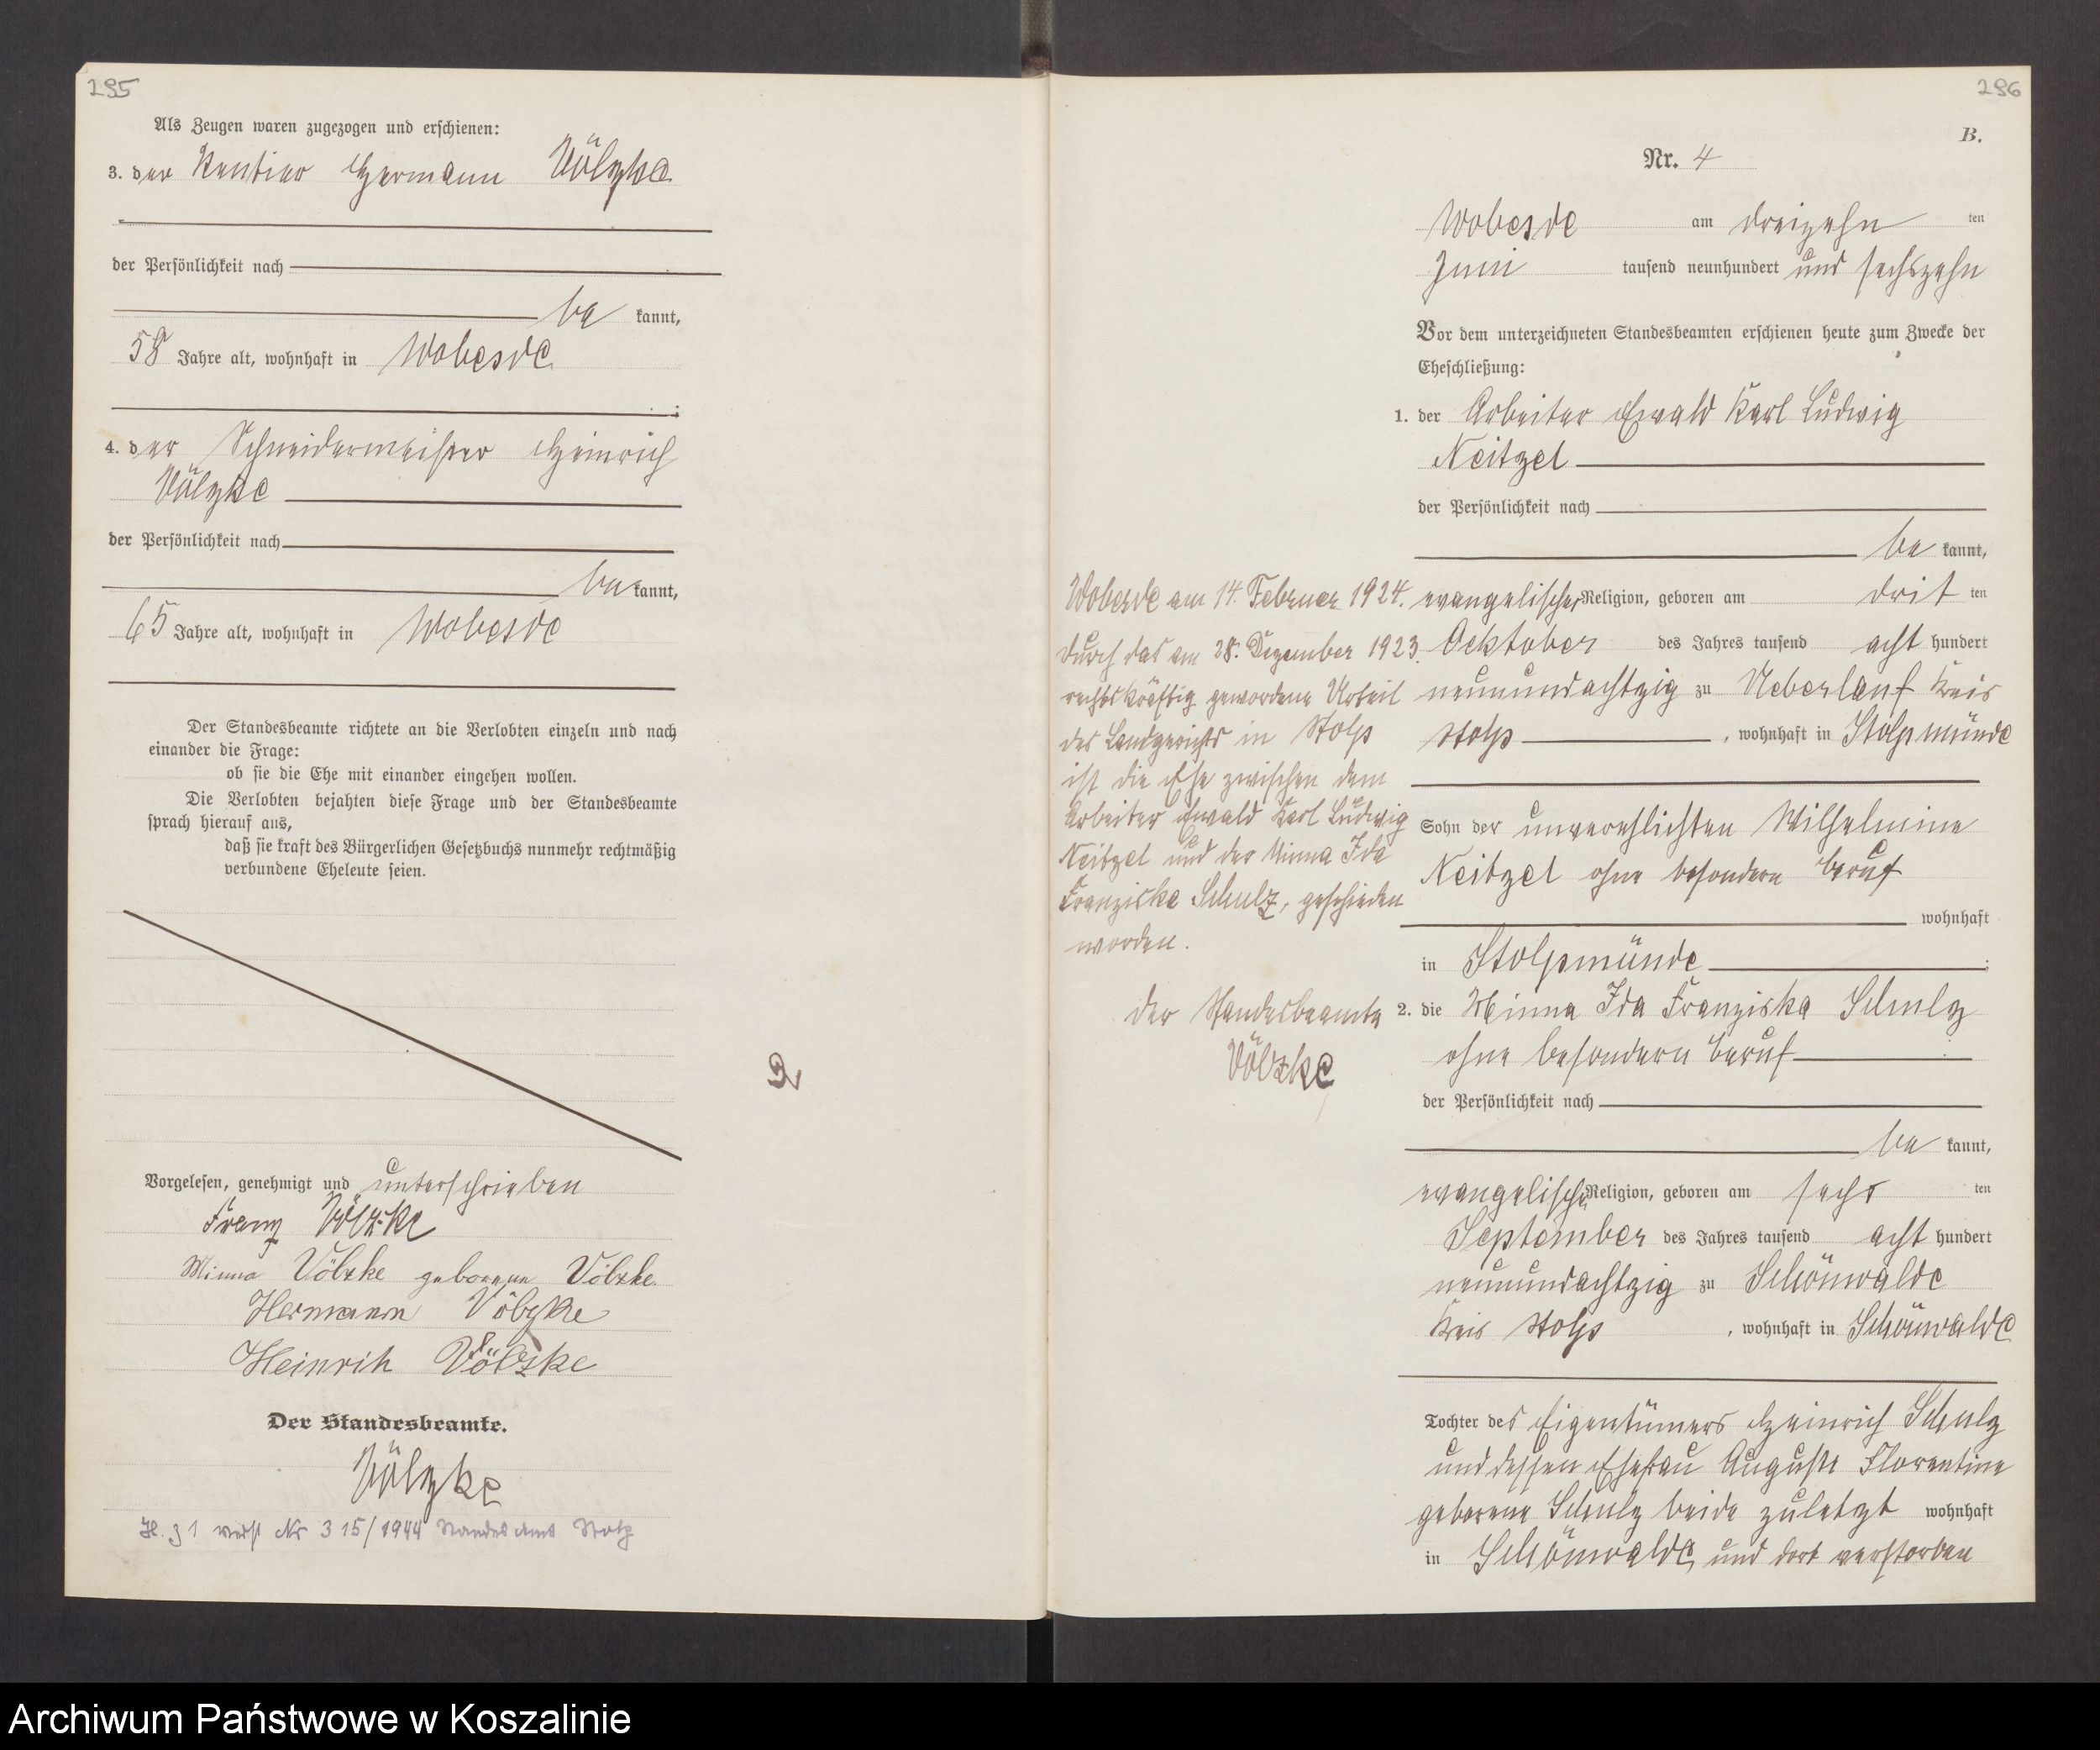 295
Als Zeugen waren zugezogen und erschienen:
3. der Rentier Hermann Völzke
der Persönlichkeit nach
be kannt,
58 Jahre alt, wohnhaft in Wobesde
4. der Schneidermeister Heinrich
Völzke
der Persönlichkeit nach
be kannt,
65 Jahre alt, wohnhaft in Wobesde
Der Standesbeamte richtete an die Verlobten einzeln und nach
einander die Frage:
ob sie die Ehe mit einander eingehen wollen.
Die Verlobten bejahten diese Frage und der Standesbeamte
sprach hierauf aus,
daß sie kraft des Bürgerlichen Gesetzbuchs nunmehr rechtmäßig
verbundene Eheleute seien.
Vorgelesen, genehmigt und unterschrieben
Franz Völzke
Minna Völzke geborene Völzke
Hermann Völzke
Heinrih Völzke
Der Standesbeamte.
Völzke
H. z 1 verst Nr 315/1944 Standesamt Stolp
296
B.
Nr. 4
Wobesde am dreizehn ten
Juni tausend neunhundert und sechszehn
Vor dem unterzeichneten Standesbeamten erschienen heute zum Zwecke der
Eheschließung:
1. der Arbeiter Ewald Karl Ludwig
Neitzel
der Persönlichkeit nach
be kannt,
evangelischer Religion, geboren am drit ten
Ocktober des Jahres tausend acht hundert
neunundachtzig zu Ueberlauf Kreis
Stolp , wohnhaft in Stolpmünde
Sohn der unverehlichten Wilhelmine
Neitzel ohne besondern Beruf
wohnhaft
in Stolpmünde ;
2. die Minna Ida Franziska Schulz
ohne besondern Beruf
der Persönlichkeit nach
be kannt,
evangelischer Religion, geboren am sechs ten
September des Jahres tausend acht hundert
neunundachtzig zu Schönwalde
Kreis Stolp , wohnhaft in Schönwalde
Tochter des Eigentümers Heinrich Schulz
und dessen Ehefrau Auguste Florentine
geborene Schulz beide zuletzt wohnhaft
in Schönwalde, und dort verstorben
Wobesde am 14. Februar 1924.
Durch das am 28. Dezember 1923.
rechtskräftig gewordene Urteil
des Landgerichts in Stolp
ist die Ehe zwischen dem
Arbeiter Ewald Karl Ludwig
Neitzel und der Minna Ida
Franziska Schulz, geschieden
worden.
Der Standesbeamte
Völzke
Archiwum Państwowe w Koszalinie